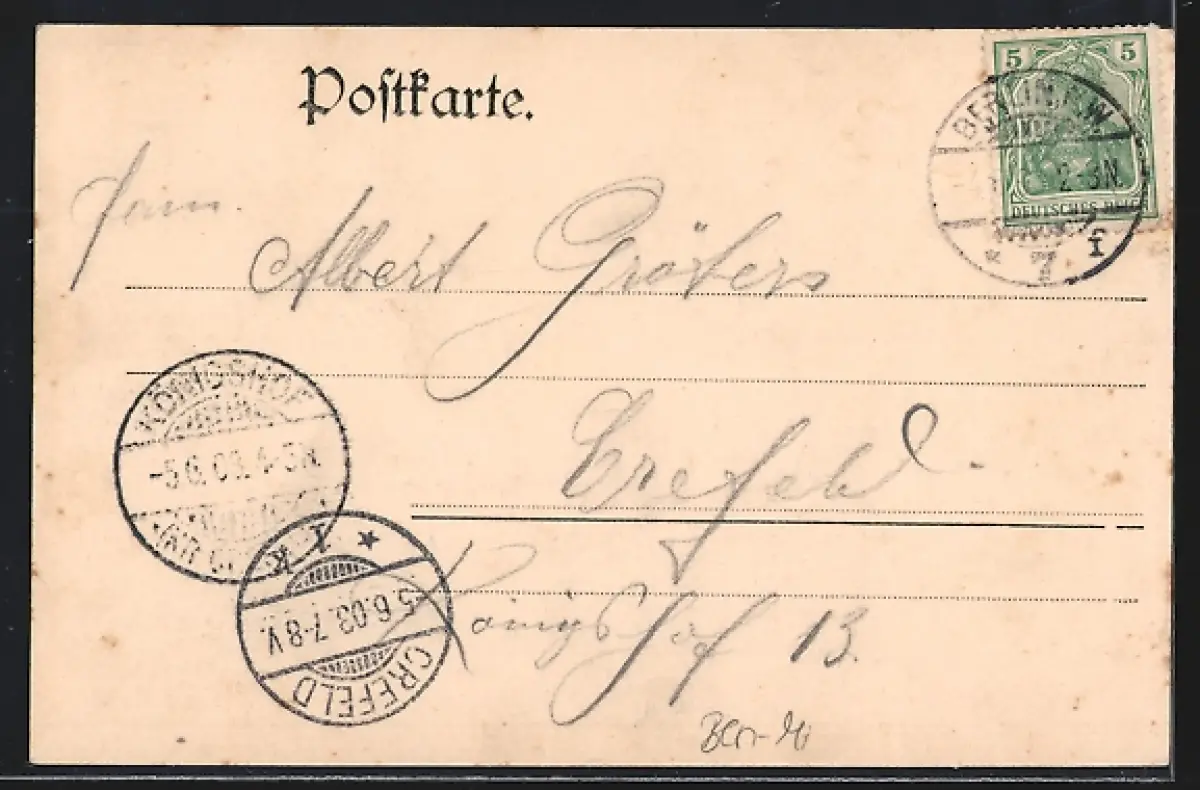 Postkarte.
5 5
DEUTSCHES REICH
BERLIN N.W.
2-3N.
* 7 f
Albert Gröters
Crefeld.
Königshof 13.
KÖNIGSHOF
-5.6.03. 4-5N.
* 1 k
5.6.03.7-8V.
CREFELD
Berl-Mi